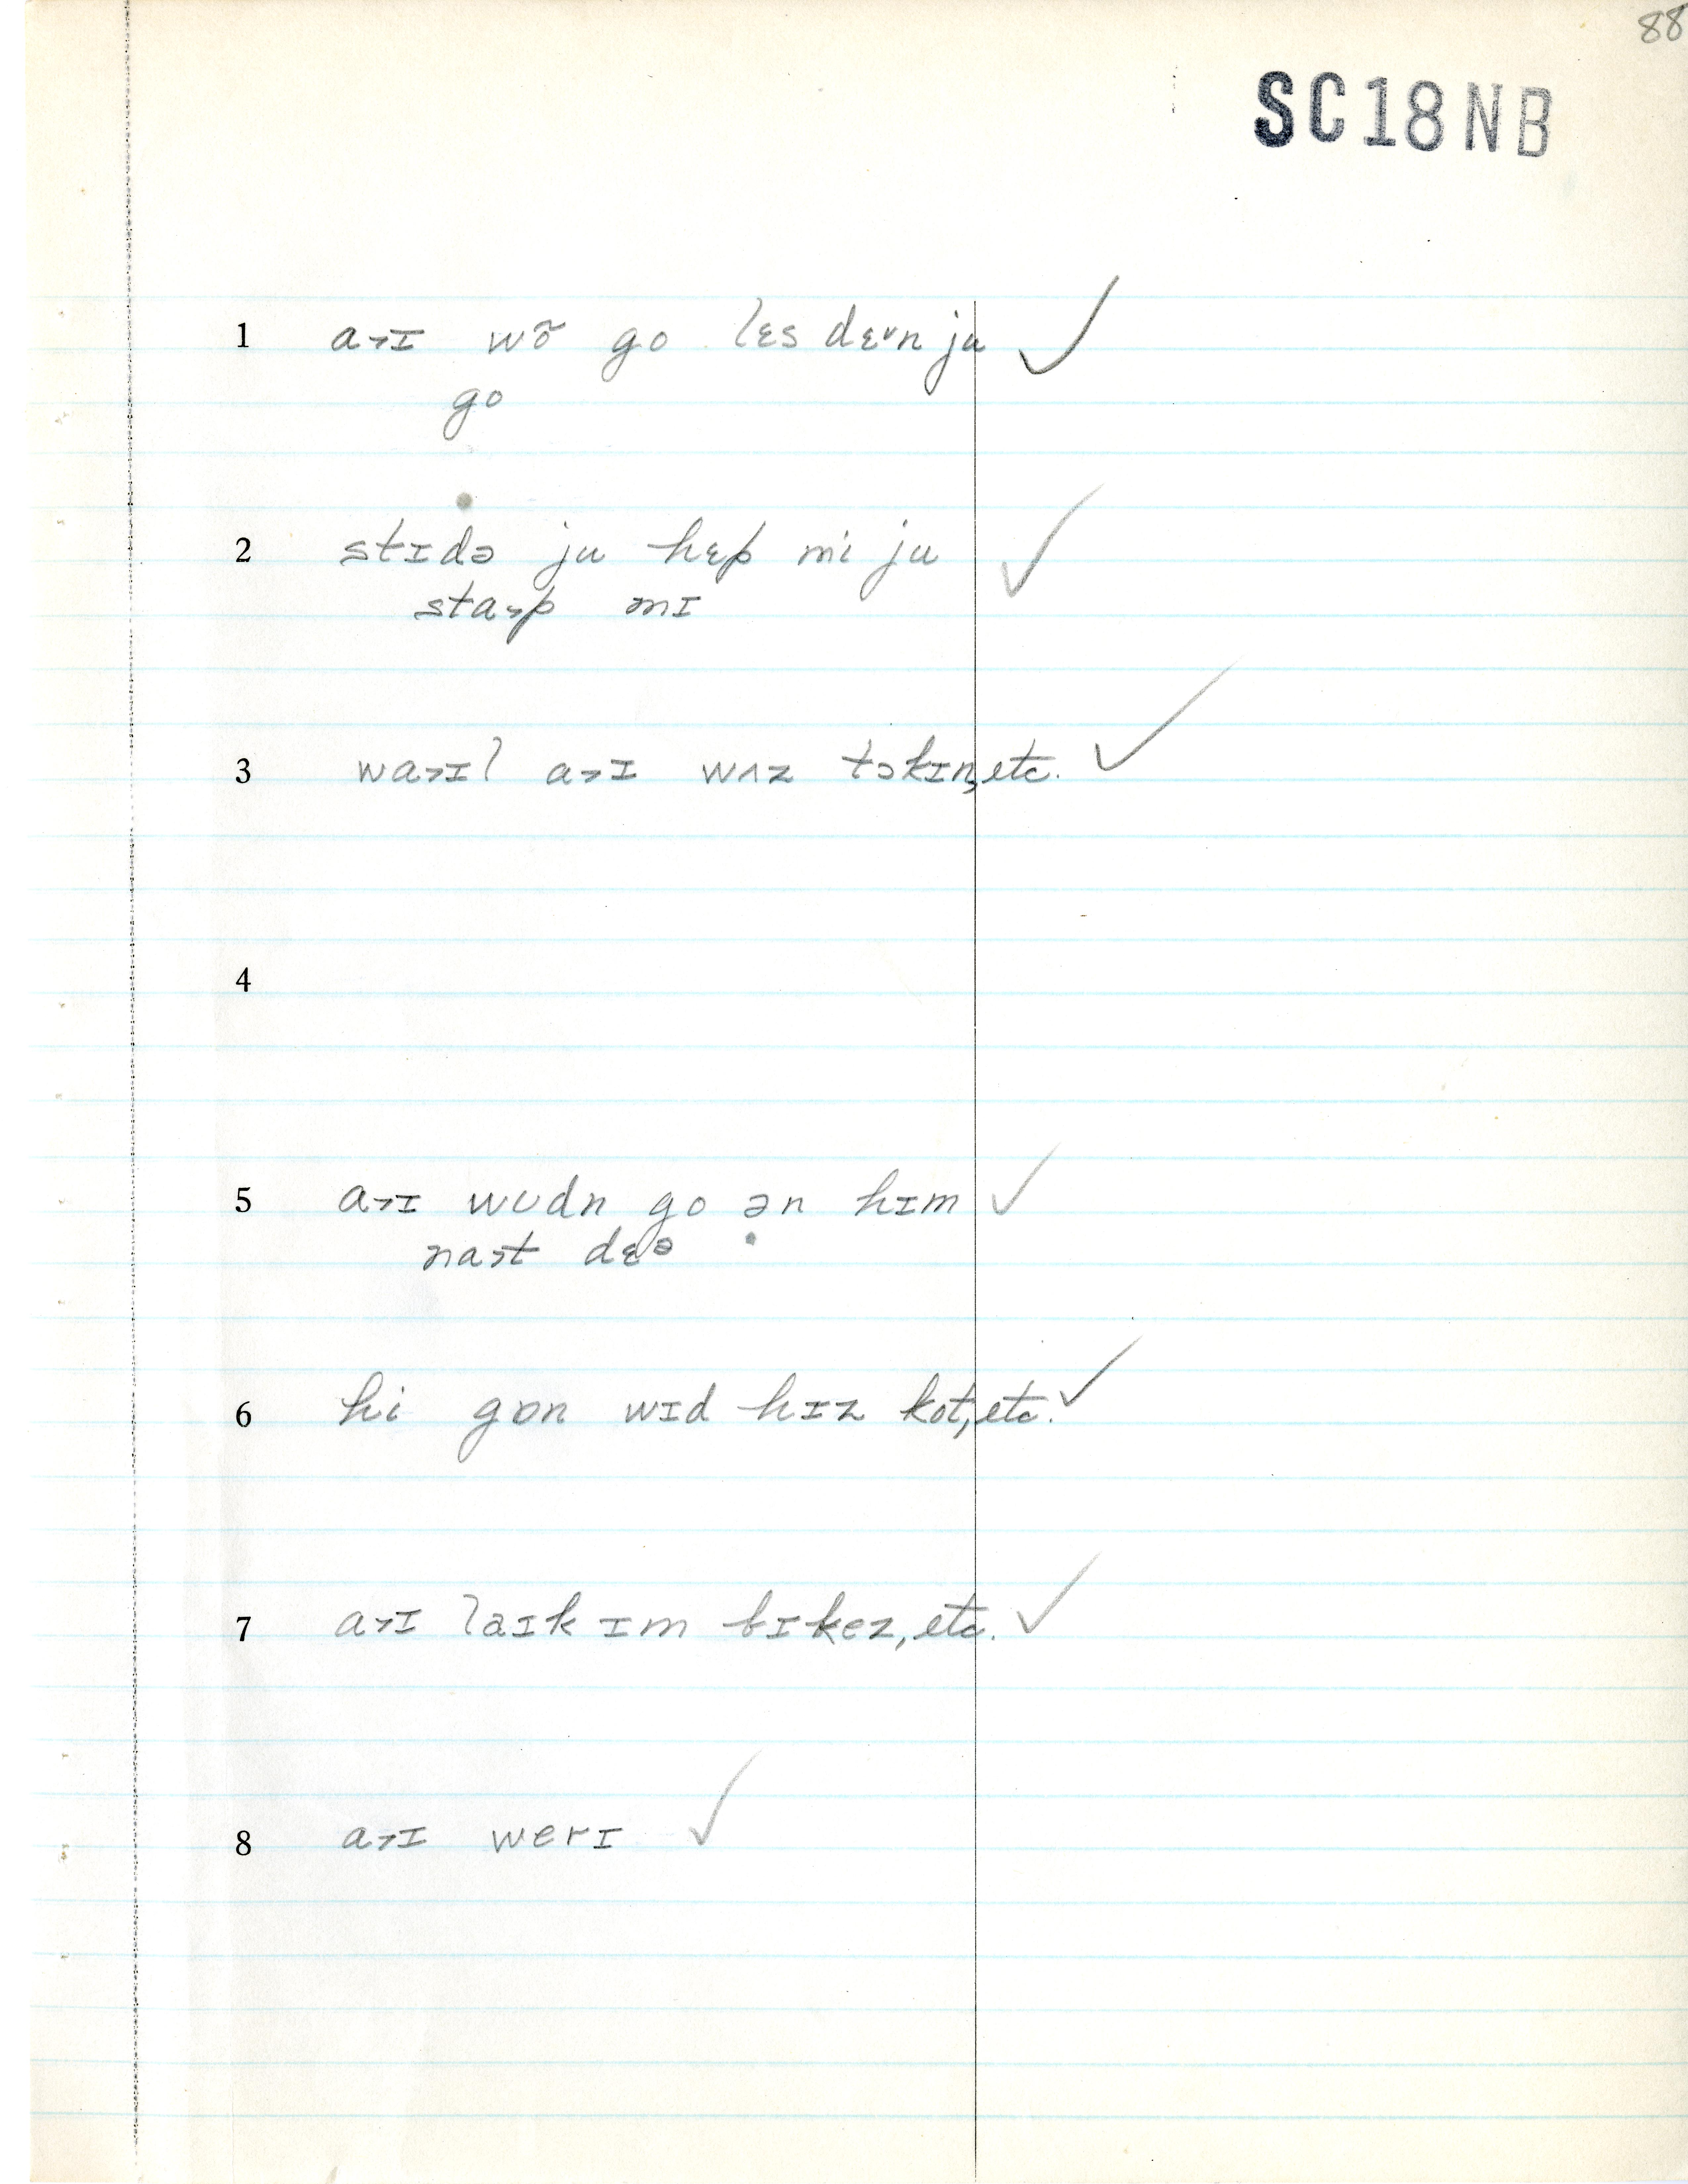 88
SC18NB
1 a˃ɪ wõ go lɛs dɛʊn ju ✓
go
2 stɪdə ju hɛp mi ju ✓
sta˃p mɪ
3 wa˃ɪl a˃ɪ wʌz tɔkɪn, etc. ✓
4
5 a˃ɪ wʊdn go ən hɪm ✓
na˃t dɛə
6 hi gɒn wɪd hɪz kot, etc. ✓
7 a˃ɪ laɪk ɪm bɪkez, etc. ✓
8 a˃ɪ werɪ ✓